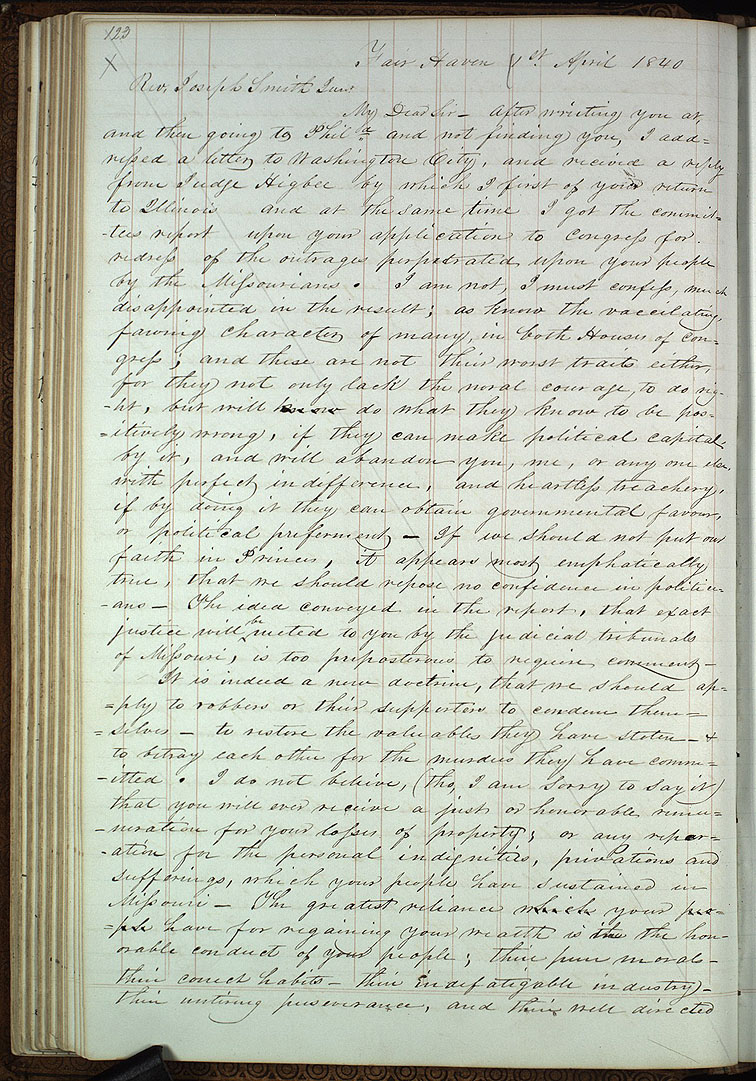 123
X
Fair Haven 1st April 1840
Rev. Joseph Smith Junr
My Dear Sir – After writing you at
and then going to Phila and not finding you, I add=
ressed a letter to Washington City, and recievd a reply
from Judge Higbee by which I first of your return
to Illinois and at the same time I got the commit=
-tees report upon your application to Congress for.
redress of the outrages perpetrated upon your people
by the Missourians. I am not, I must confess, much
disappointed in the result; as know the vaccilating,
fawning character of many in both Houses of con-
gress; and these are not their worst traits either,
for they not only lack the moral courage to do rig-
-ht, but will know do what they know to be pos-
=itively wrong, if they can make political capital
by it, and will abandon you, me, or any one else,
with perfect indifference, and heartless treachery,
if by doing it they can obtain governmental favour,
or political preferment – If we should not put our
faith in Princes, it appears most emphatically
true, that we should repose no confidence in politici-
-ans – The idea conveyed in the report, that exact
justice will be meted to you by the judicial tribunals
of Missouri, is too preposterous to require comment –
It is indeed a new doctrine, that we should ap-
=ply to robbers or their supporters to condem them=
=selves – to restore the valuables they have stolen – &
to betray each other for the murders they have comm-
-itted. I do not believe, (tho, I am sorry to say it)
that you will ever receive a just or honorable remu-
-neration for your losses of property; or any repar-
-ation for the personal indignities, privations and
sufferings, which your people have sustained in
Missouri – The greatest reliance which your peo-
-ple have for regaining your wealth is in the hon-
orable conduct of your people; their pure morals –
their correct habits – their indefatigable industry –
their untiring perseverance, and their well directed